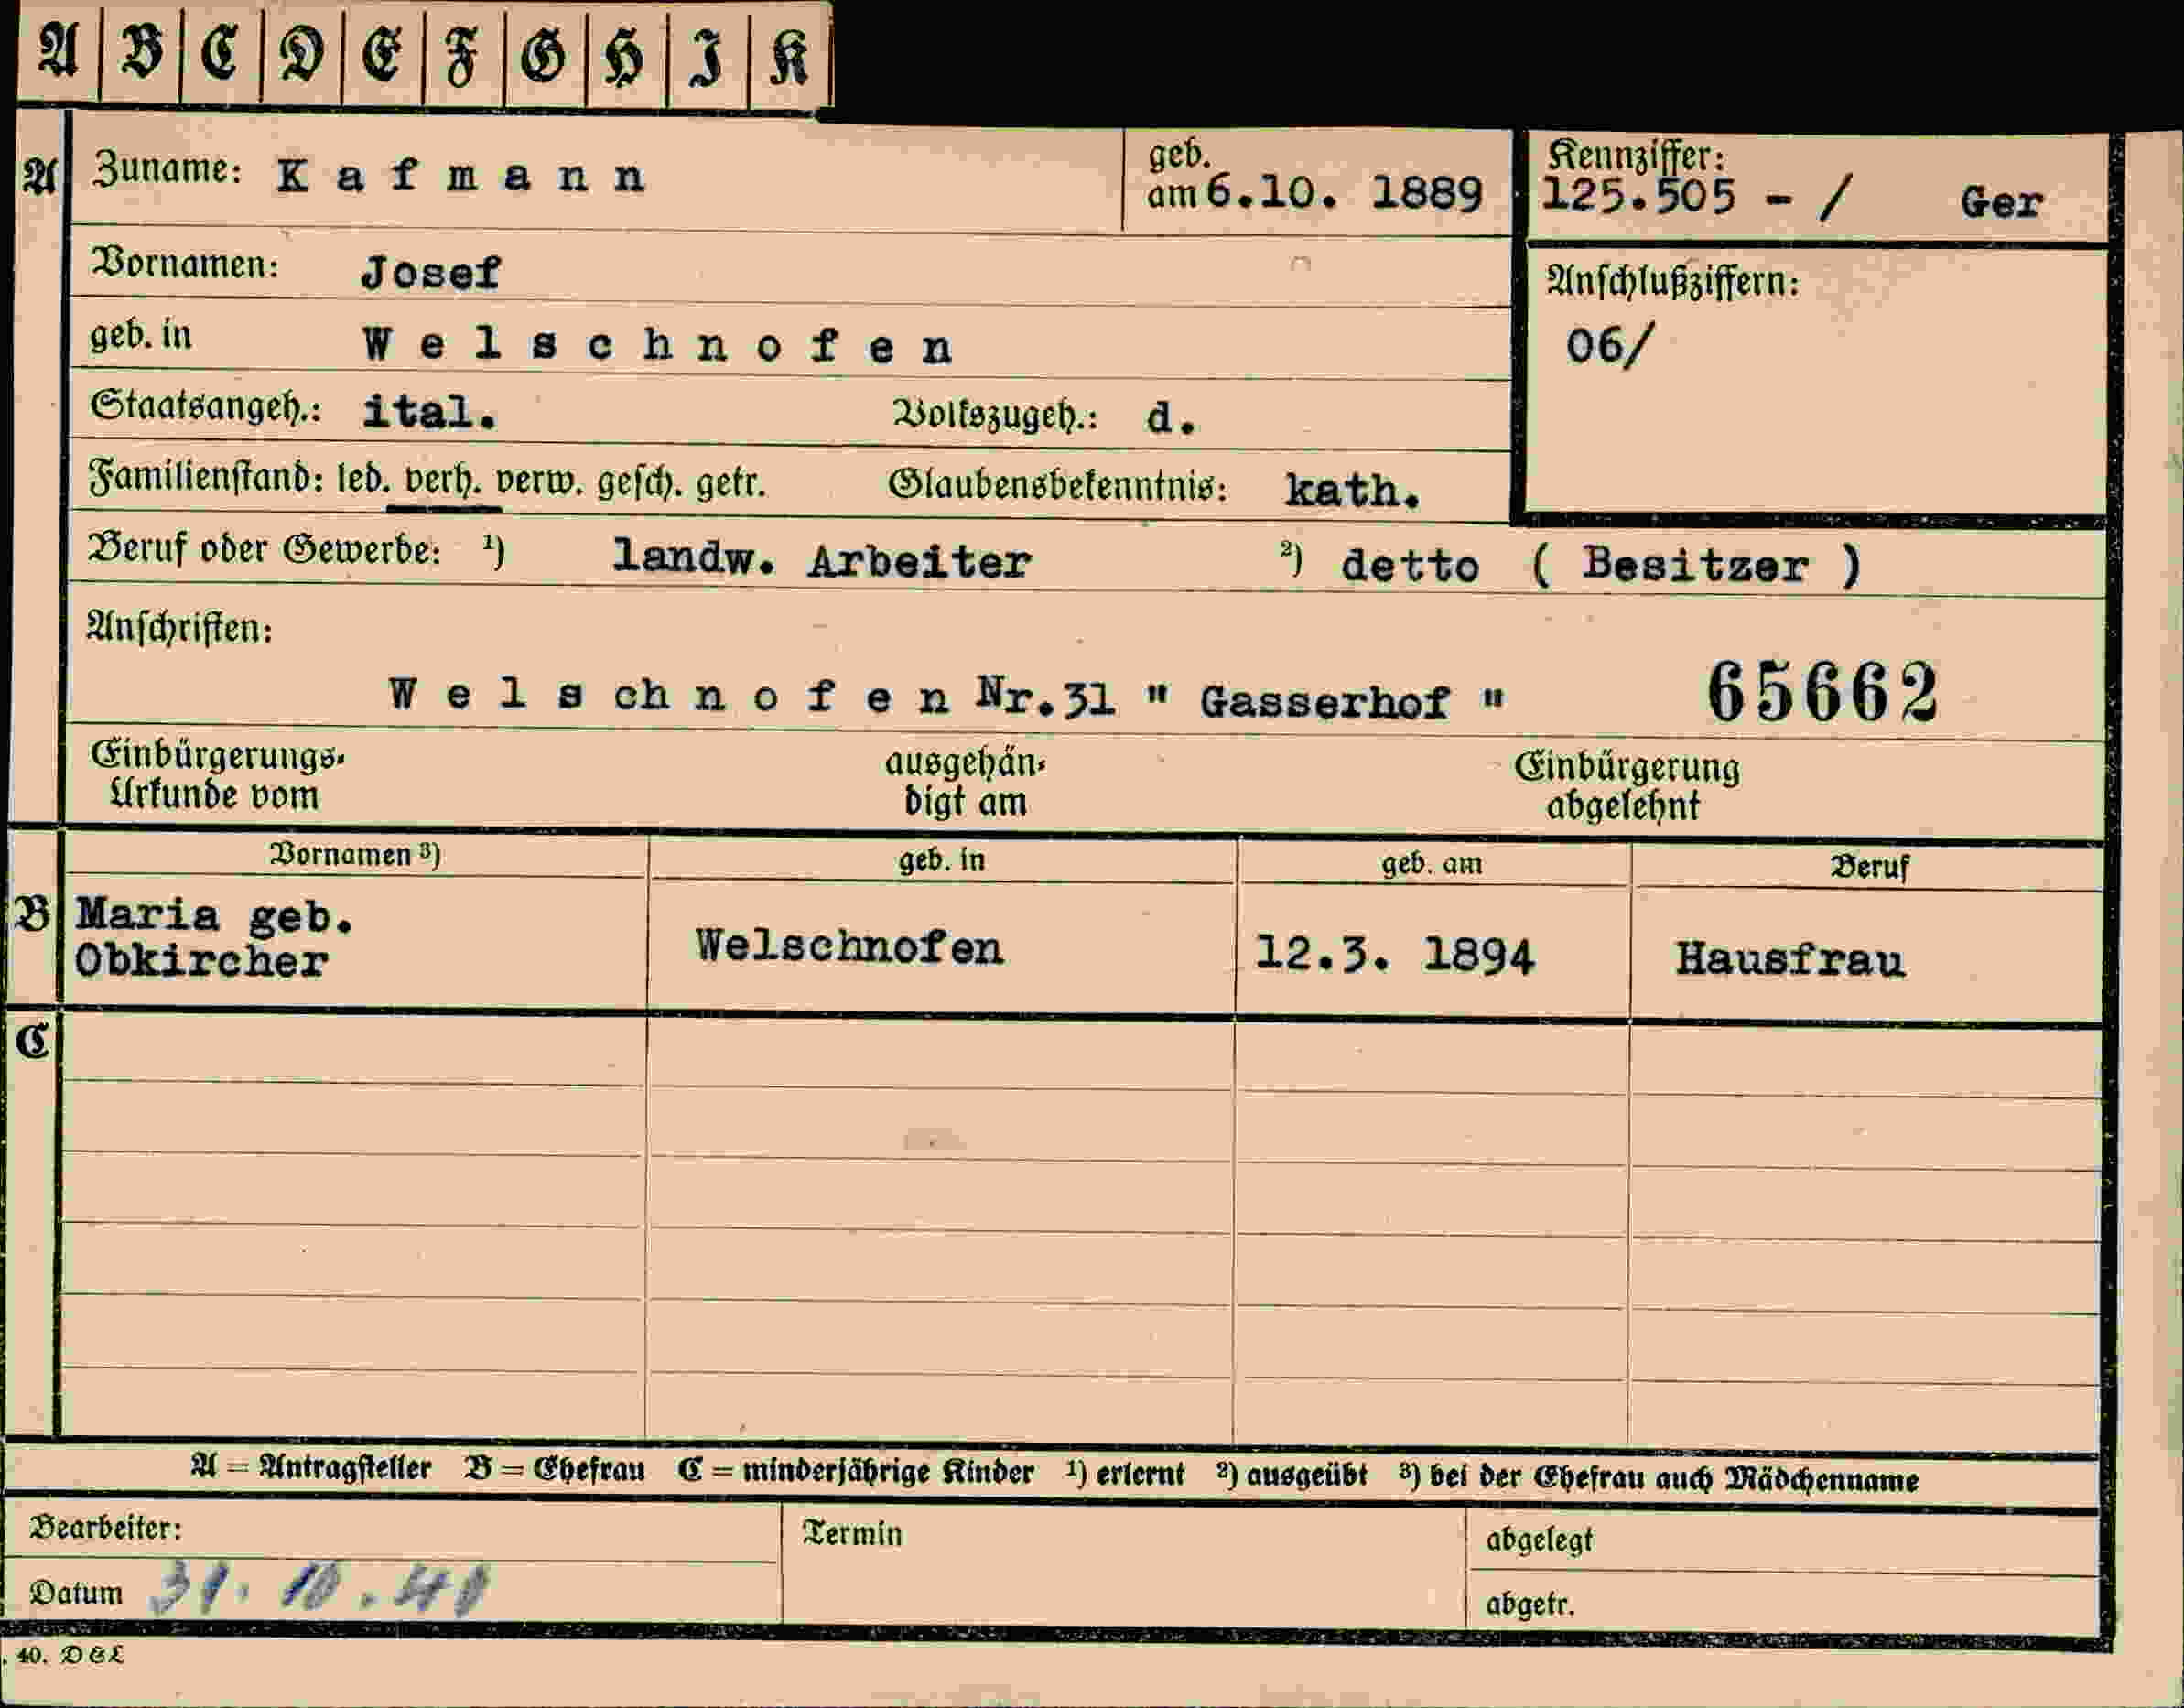 A B C D E F G H I K
A Zuname: Kafmann geb. am 6.10. 1889 Kennziffer: 125.505 - / Ger
Vornamen: Josef Anschlußziffern:
geb. in Welschnofen 06/
Staatsangeh.: ital. Volkszugeh.: d.
Familienstand: led. verh. verw. gesch. getr. Glaubensbekenntnis: kath.
Beruf oder Gewerbe: ¹) landw. Arbeiter ²) detto ( Besitzer )
Anschriften:
Welschnofen Nr.31 " Gasserhof " 65662
Einbürgerungs- ausgehän- Einbürgerung
Urkunde vom digt am abgelehnt
Vornamen ³) geb. in geb. am Beruf
B Maria geb.
Obkircher Welschnofen 12.3. 1894 Hausfrau
C
A = Antragsteller B = Ehefrau C = minderjährige Kinder ¹) erlernt ²) ausgeübt ³) bei der Ehefrau auch Mädchenname
Bearbeiter: Termin abgelegt
Datum 31. 10. 40 abgetr.
. 40. D & L